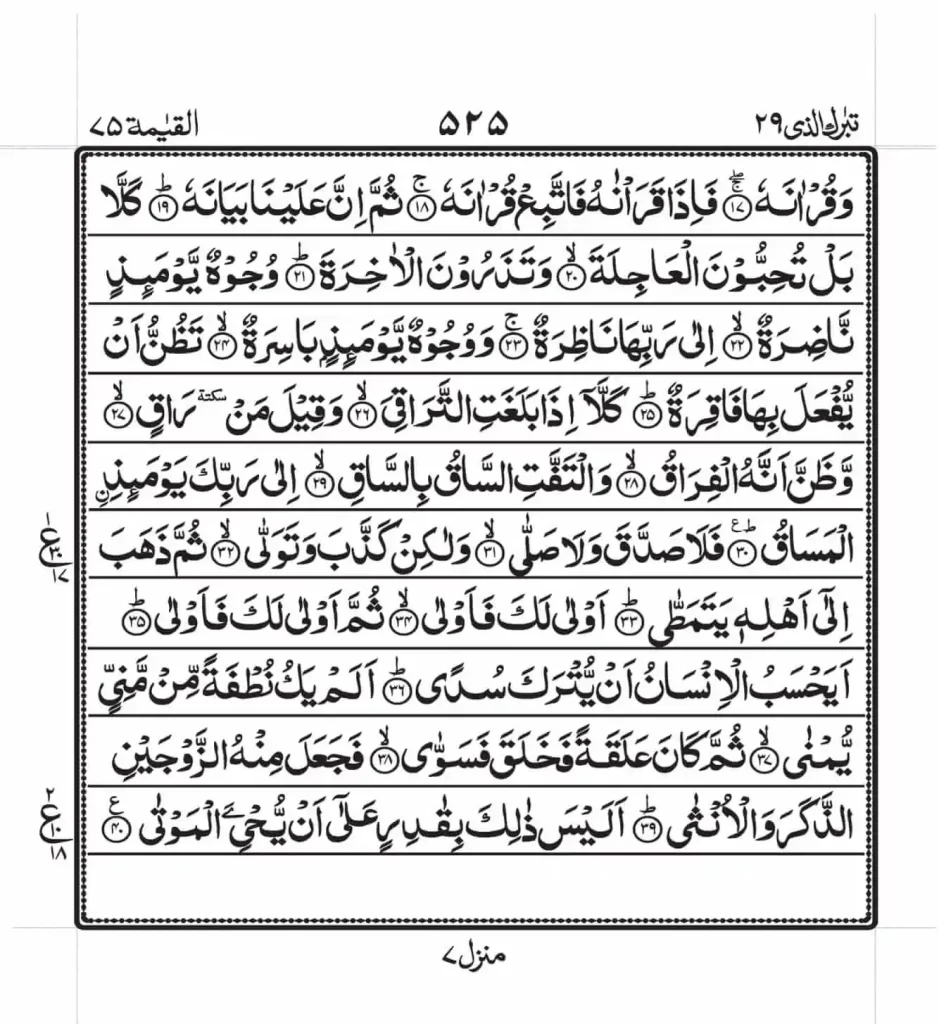 تبٰرك الذی ۲۹
۵۲۵
القیٰمة ۷۵
وَقُرْاٰنَهٗ ۚۖ﴿۱۷﴾ فَاِذَا قَرَاْنٰهُ فَاتَّبِعْ قُرْاٰنَهٗ ۚ﴿۱۸﴾ ثُمَّ اِنَّ عَلَيْنَا بَيَانَهٗ ؕ﴿۱۹﴾ كَلَّا
بَلْ تُحِبُّوْنَ الْعَاجِلَةَ ۙ﴿۲۰﴾ وَتَذَرُوْنَ الْاٰخِرَةَ ؕ﴿۲۱﴾ وُجُوْهٌ يَّوْمَىِٕذٍ
نَّاضِرَةٌ ۙ﴿۲۲﴾ اِلٰى رَبِّهَا نَاظِرَةٌ ۚ﴿۲۳﴾ وَوُجُوْهٌ يَّوْمَىِٕذٍۭ بَاسِرَةٌ ۙ﴿۲۴﴾ تَظُنُّ اَنْ
يُّفْعَلَ بِهَا فَاقِرَةٌ ؕ﴿۲۵﴾ كَلَّاۤ اِذَا بَلَغَتِ التَّرَاقِيَ ۙ﴿۲۶﴾ وَقِيْلَ مَنْ سكتة رَاقٍ ۙ﴿۲۷﴾
وَّظَنَّ اَنَّهُ الْفِرَاقُ ۙ﴿۲۸﴾ وَالْتَفَّتِ السَّاقُ بِالسَّاقِ ۙ﴿۲۹﴾ اِلٰى رَبِّكَ يَوْمَىِٕذِ ِۨ
الْمَسَاقُ ؕع﴿۳۰﴾ فَلَا صَدَّقَ وَلَا صَلّٰى ۙ﴿۳۱﴾ وَلٰكِنْ كَذَّبَ وَتَوَلّٰى ۙ﴿۳۲﴾ ثُمَّ ذَهَبَ
۱ ع ۳۰ ۱۷
اِلٰٓى اَهْلِهٖ يَتَمَطّٰى ؕ﴿۳۳﴾ اَوْلٰى لَكَ فَاَوْلٰى ۙ﴿۳۴﴾ ثُمَّ اَوْلٰى لَكَ فَاَوْلٰى ؕ﴿۳۵﴾
اَيَحْسَبُ الْاِنْسَانُ اَنْ يُّتْرَكَ سُدًى ؕ﴿۳۶﴾ اَلَمْ يَكُ نُطْفَةً مِّنْ مَّنِيٍّ
يُّمْنٰى ۙ﴿۳۷﴾ ثُمَّ كَانَ عَلَقَةً فَخَلَقَ فَسَوّٰى ۙ﴿۳۸﴾ فَجَعَلَ مِنْهُ الزَّوْجَيْنِ
الذَّكَرَ وَالْاُنْثٰى ؕ﴿۳۹﴾ اَلَيْسَ ذٰلِكَ بِقٰدِرٍ عَلٰٓى اَنْ يُّحْيِۦَ الْمَوْتٰى ع﴿۴۰﴾
۲ ع ۱۰ ۱۸
منزل ۷